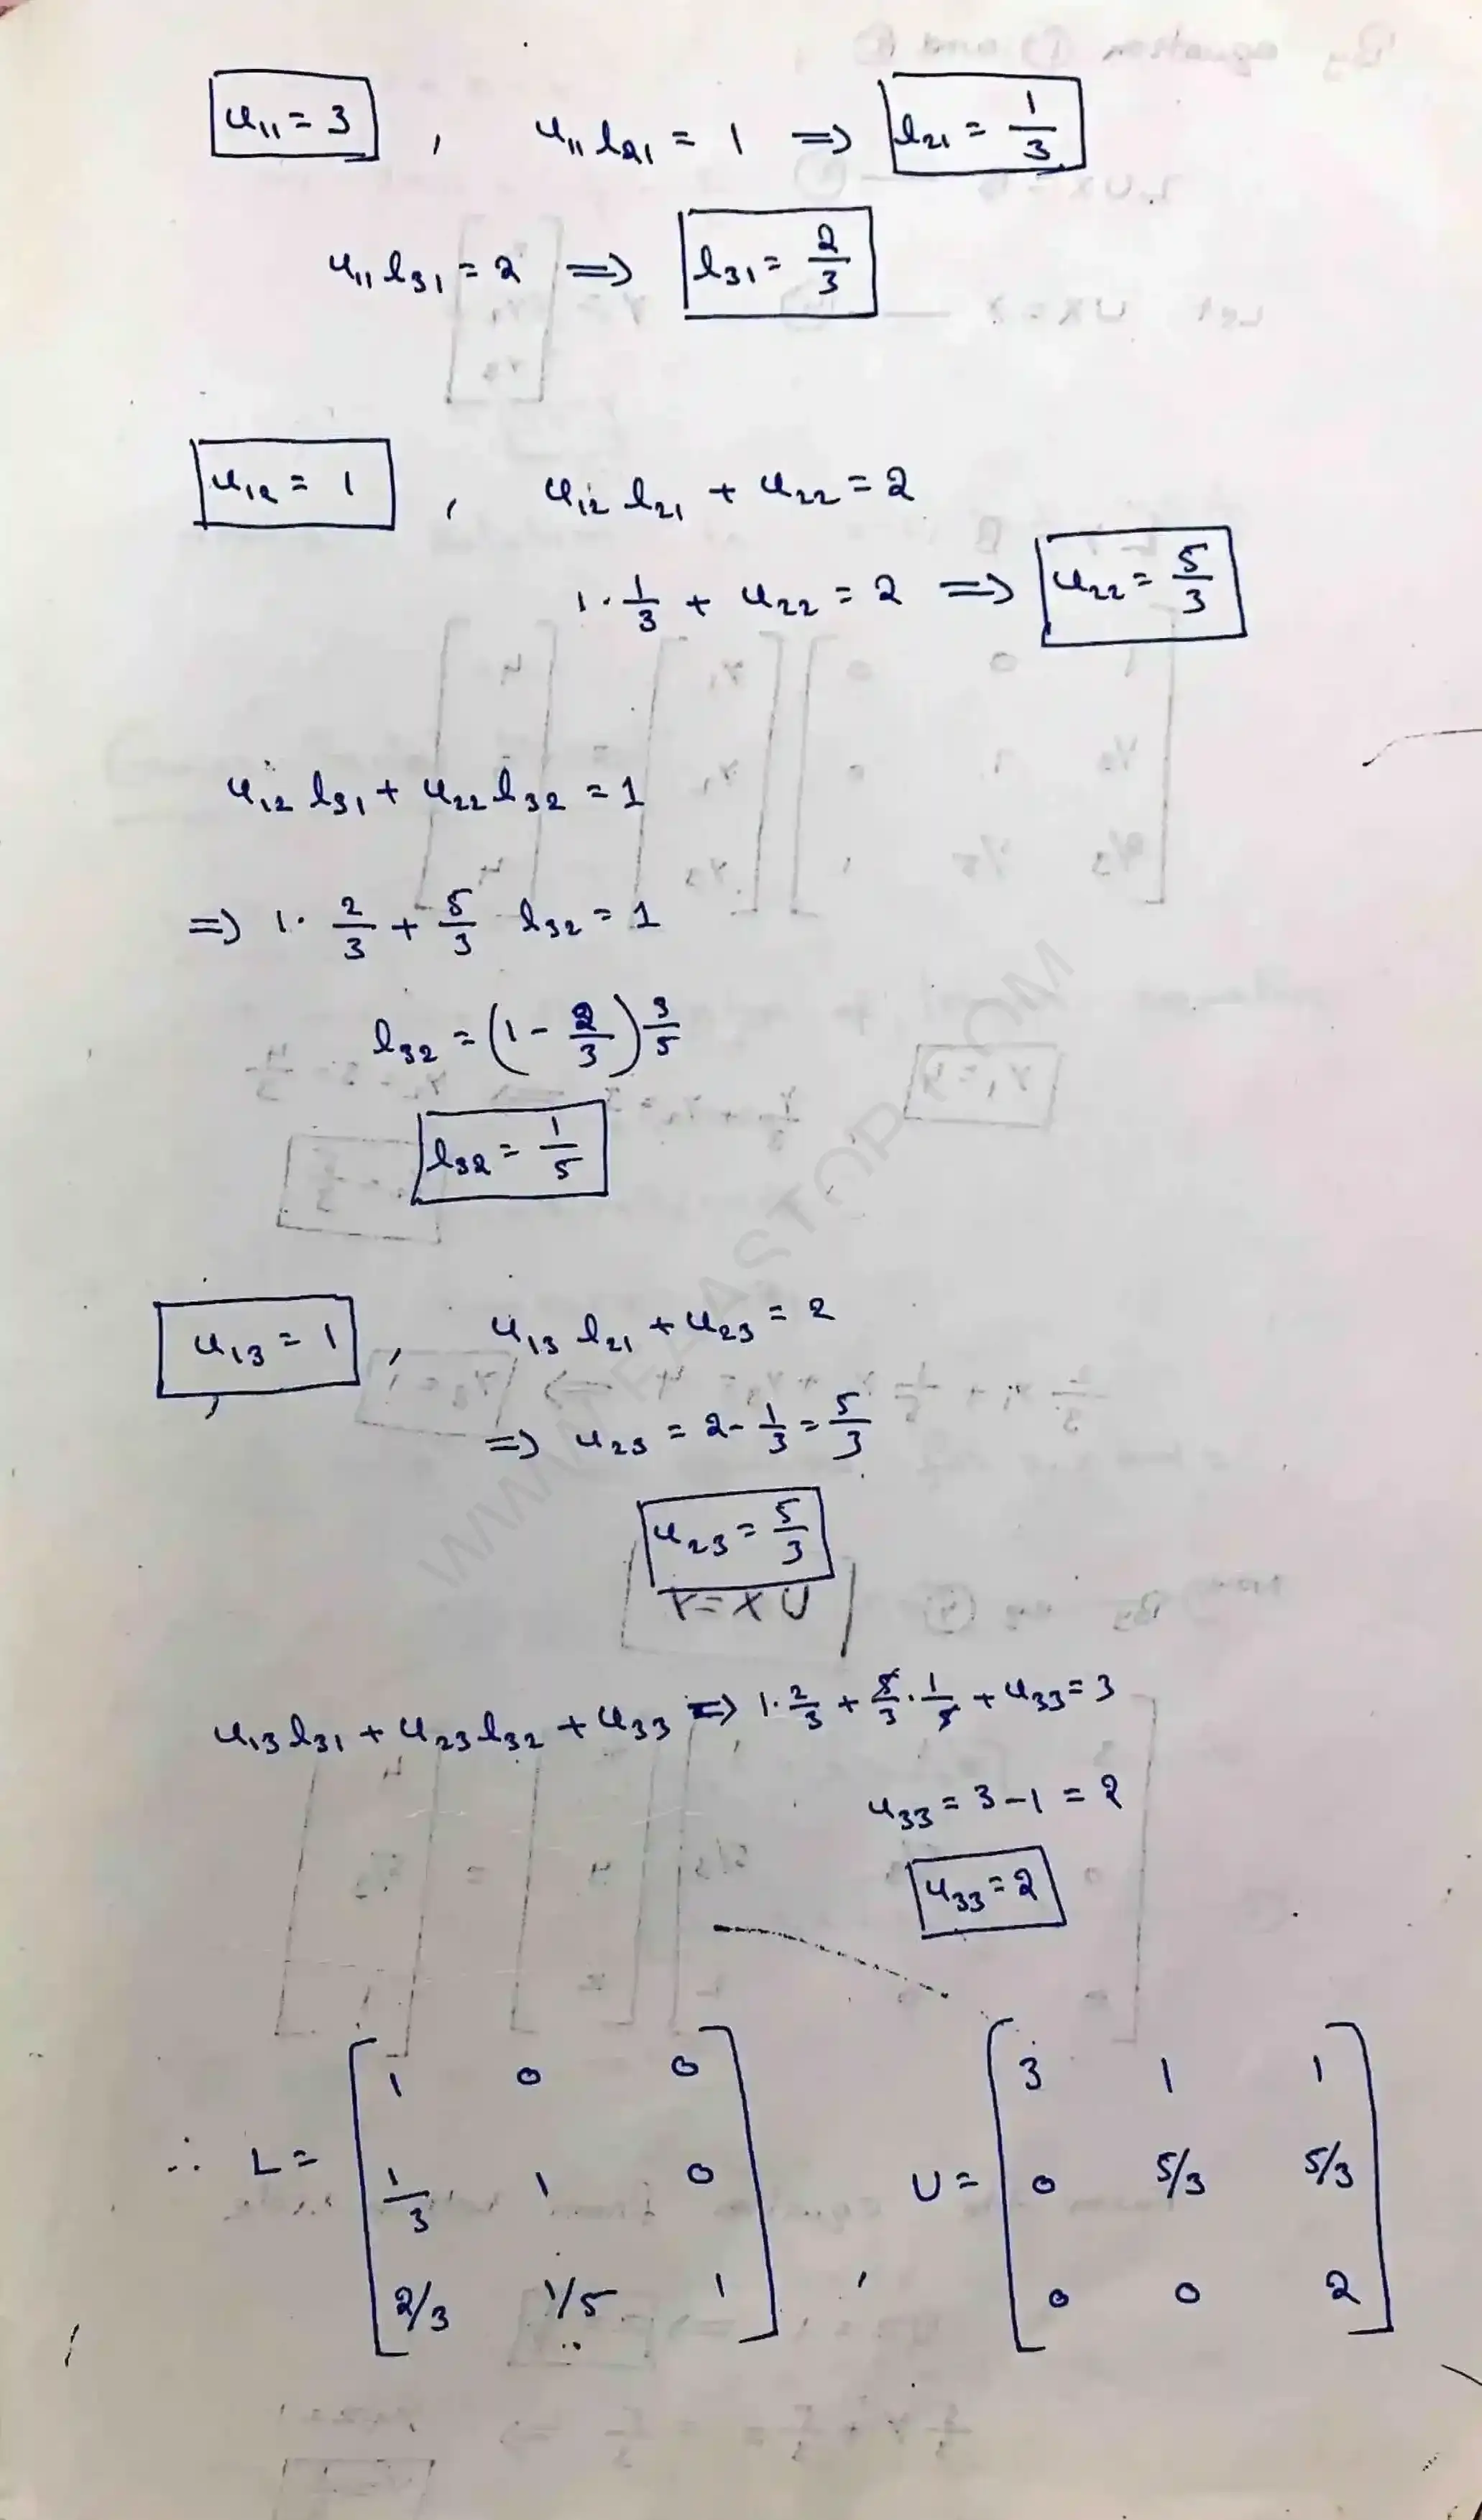 u₁₁ = 3 , u₁₁ l₂₁ = 1 ⇒ l₂₁ = 1/3
u₁₁ l₃₁ = 2 ⇒ l₃₁ = 2/3
u₁₂ = 1 , u₁₂ l₂₁ + u₂₂ = 2
1 · 1/3 + u₂₂ = 2 ⇒ u₂₂ = 5/3
u₁₂ l₃₁ + u₂₂ l₃₂ = 1
⇒ 1 · 2/3 + 5/3 l₃₂ = 1
l₃₂ = (1 - 2/3) 3/5
l₃₂ = 1/5
u₁₃ = 1 , u₁₃ l₂₁ + u₂₃ = 2
⇒ u₂₃ = 2 - 1/3 = 5/3
u₂₃ = 5/3
u₁₃ l₃₁ + u₂₃ l₃₂ + u₃₃ ⇒ 1 · 2/3 + 5/3 · 1/5 + u₃₃ = 3
u₃₃ = 3 - 1 = 2
u₃₃ = 2
∴ L = [ 1 0 0 ; 1/3 1 0 ; 2/3 1/5 1 ] , U = [ 3 1 1 ; 0 5/3 5/3 ; 0 0 2 ]